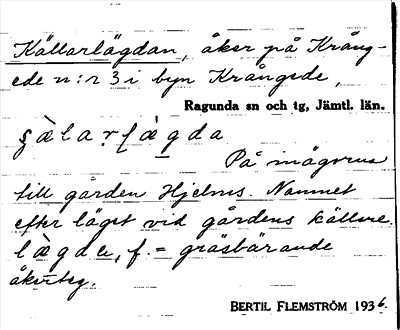 Källarlägdan, åker på Krång-
ede n:r 3 i byn Krångede,
Ragunda sn och tg, Jämtl. län.
På inägorna
till gården Hjelms. Namnet
efter läget vid gårdens källare.
f. = gräsbärande
åkerteg.
BERTIL FLEMSTRÖM 1936.